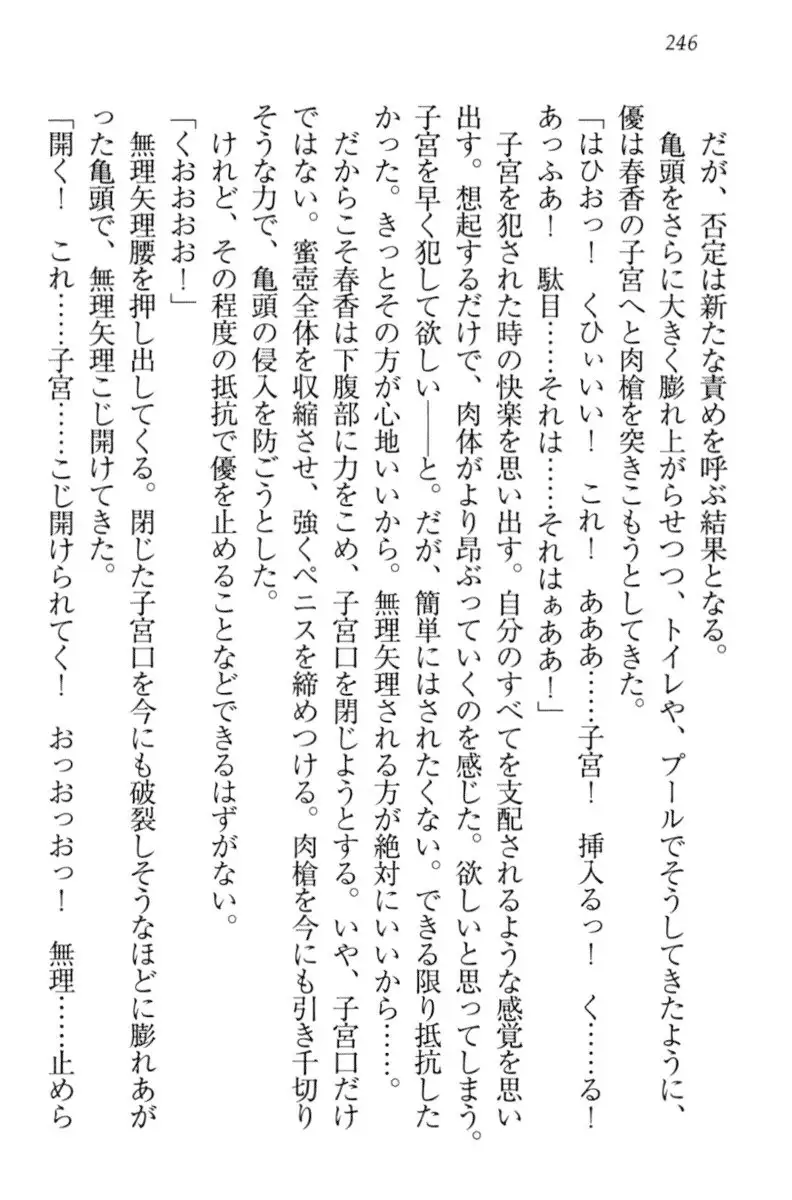 246
だが、否定は新たな責めを呼ぶ結果となる。
亀頭をさらに大きく膨れ上がらせつつ、トイレや、プールでそうしてきたように、
優は春香の子宮へと肉槍を突きこもうとしてきた。
「はひおっ！　くひぃいい！　これ！　あああ……子宮！　挿入るっ！　く……る！
あっふあ！　駄目……それは……それはぁああ！」
子宮を犯された時の快楽を思い出す。自分のすべてを支配されるような感覚を思い
出す。想起するだけで、肉体がより昂ぶっていくのを感じた。欲しいと思ってしまう。
子宮を早く犯して欲しい――と。だが、簡単にはされたくない。できる限り抵抗した
かった。きっとその方が心地いいから。無理矢理される方が絶対にいいから……。
だからこそ春香は下腹部に力をこめ、子宮口を閉じようとする。いや、子宮口だけ
ではない。蜜壺全体を収縮させ、強くペニスを締めつける。肉槍を今にも引き千切り
そうな力で、亀頭の侵入を防ごうとした。
けれど、その程度の抵抗で優を止めることなどできるはずがない。
「くおおおお！」
無理矢理腰を押し出してくる。閉じた子宮口を今にも破裂しそうなほどに膨れあが
った亀頭で、無理矢理こじ開けてきた。
「開く！　これ……子宮……こじ開けられてく！　おっおっおっ！　無理……止めら